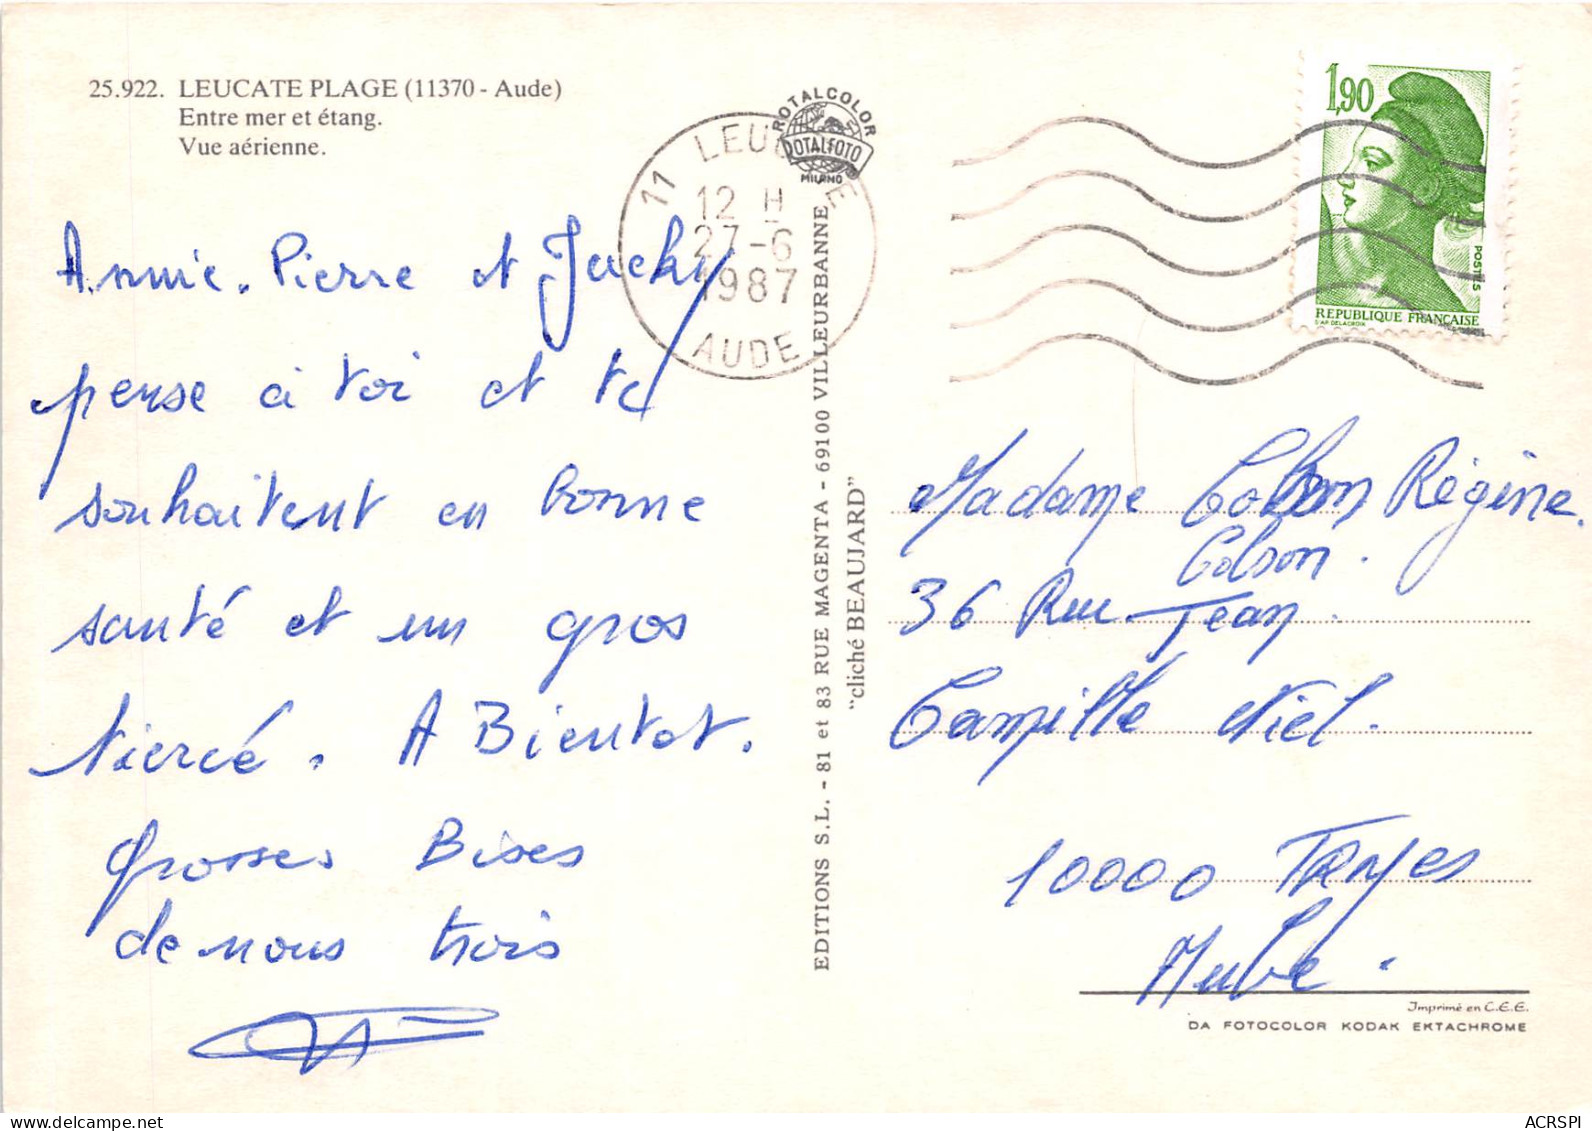 25.922. LEUCATE PLAGE (11370 - Aude)
Entre mer et étang.
Vue aérienne.
ROTALCOLOR
ROTALFOTO
MILANO
11 LEUCATE
12 H
27-6
1987
AUDE
1,90
POSTES
REPUBLIQUE FRANÇAISE
D'AP. DELACROIX
Annie. Pierre et Jacky
pense à toi et te
souhaitent en bonne
santé et un gros
tiercé. A Bientot.
Grosses Bises
de nous trois
EDITIONS S.L. - 81 et 83 RUE MAGENTA - 69100 VILLEURBANNE
"cliché BEAUJARD"
Madame Colson Régine.
Colson.
36 Rue Jean.
Camille Niel.
10000 Troyes
Aube.
Imprimé en C.E.E.
DA FOTOCOLOR KODAK EKTACHROME
ACRSPI